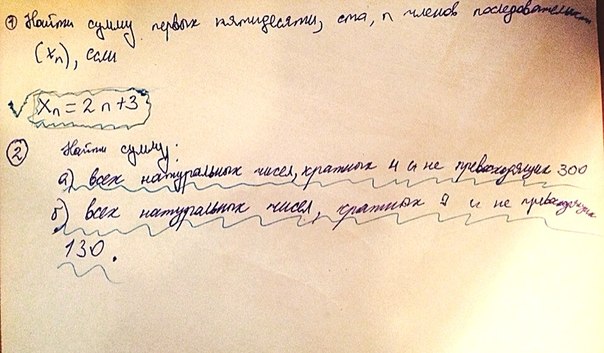 ① Найти сумму первых пятидесяти, ста, n членов последовательности
(xₙ), если
xₙ = 2n+3
② Найти сумму:
а) всех натуральных чисел, кратных 4 и не превосходящих 300
б) всех натуральных чисел, кратных и не превосходящих
130.